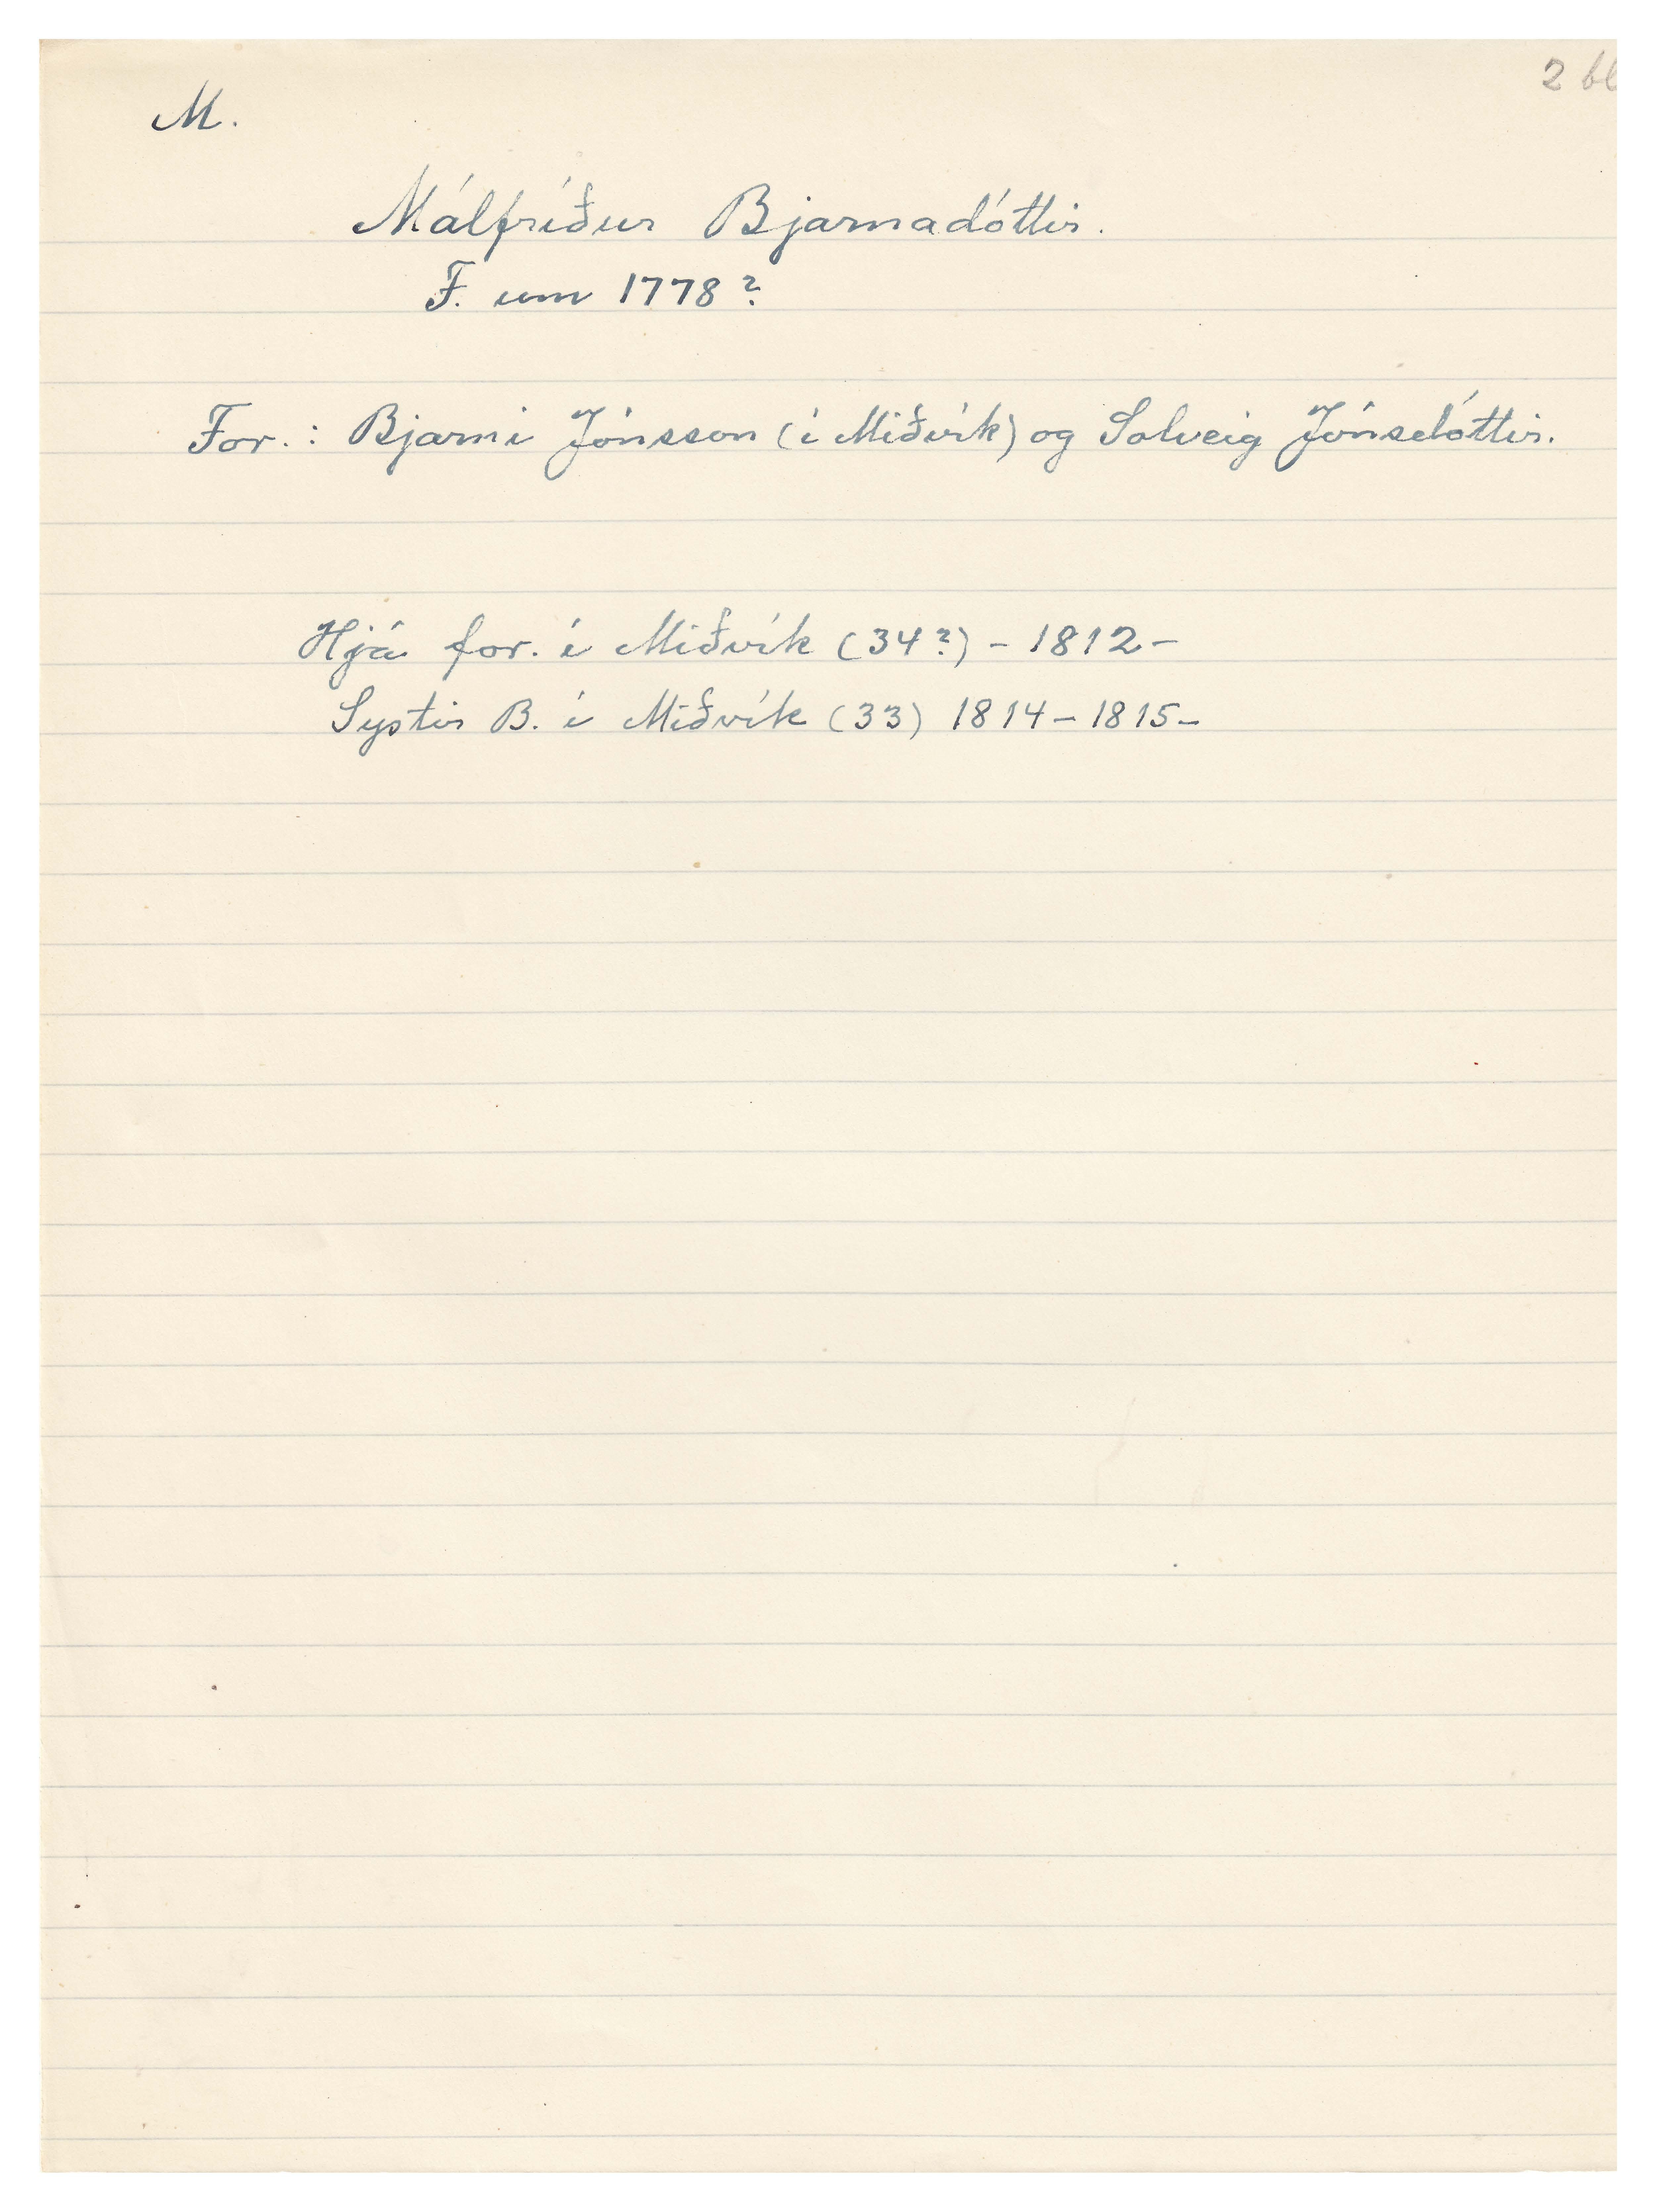 2 bl
M.
Málfríður Bjarnadóttir.
F. um 1778?
For.: Bjarni Jónsson (í Miðvík) og Solveig Jónsdóttir.
Hjá for. í Miðvík (34?) - 1812 -
Systir B. í Miðvík (33) 1814 - 1815 -